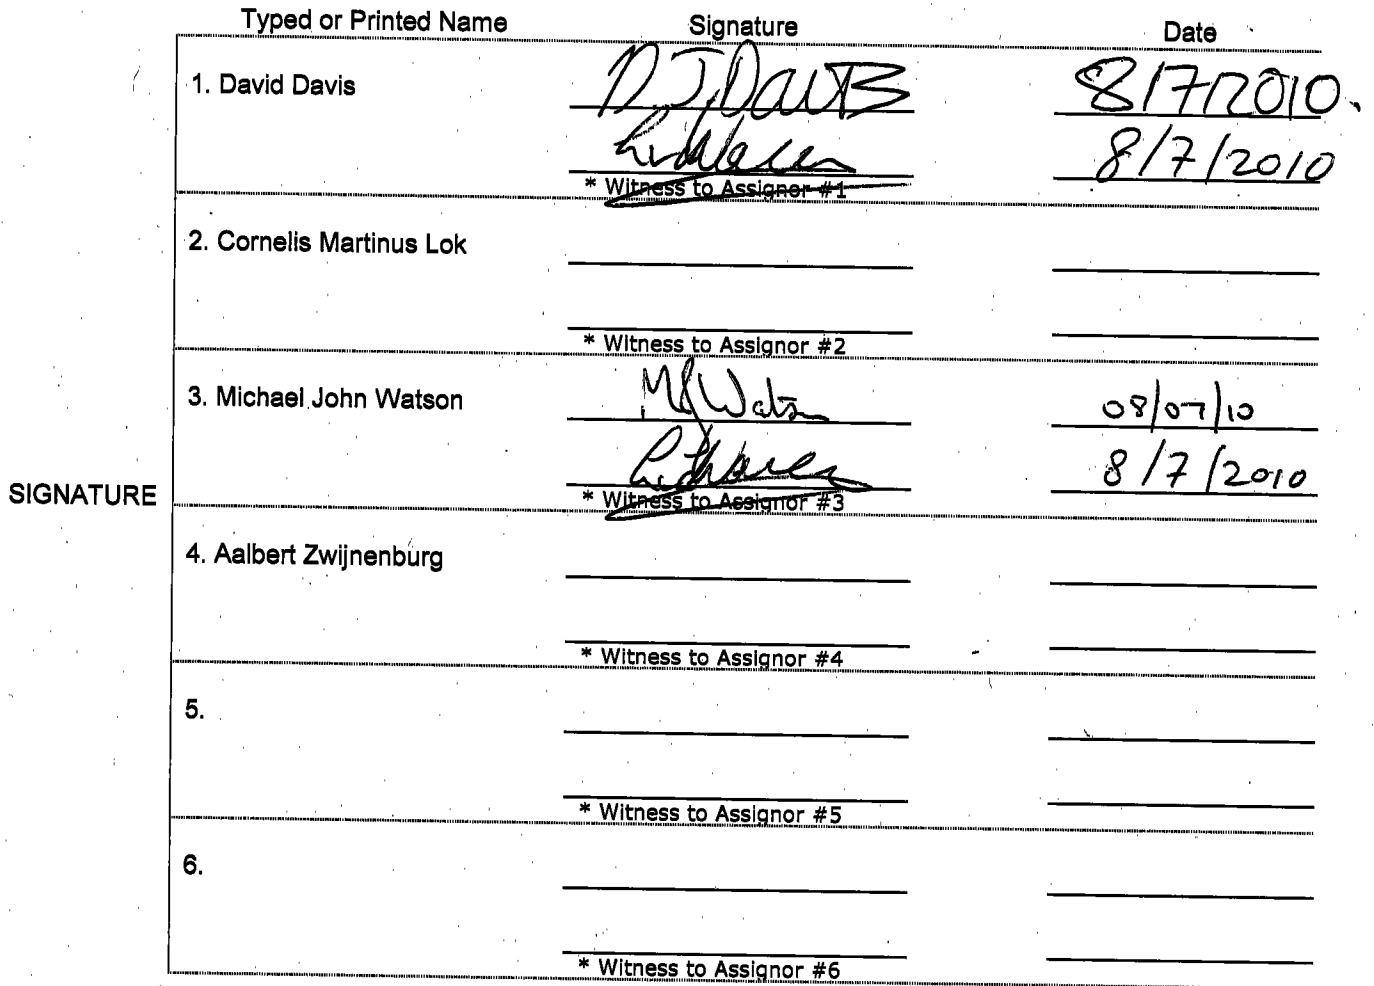 Typed or Printed Name Signature Date
1. David Davis D.J. Davis 8/7/2010.
8/7/2010
* Witness to Assignor #1
2. Cornelis Martinus Lok
* Witness to Assignor #2
3. Michael John Watson MJWatson 08/07/10
8/7/2010
SIGNATURE
* Witness to Assignor #3
4. Aalbert Zwijnenburg
* Witness to Assignor #4
5.
* Witness to Assignor #5
6.
* Witness to Assignor #6